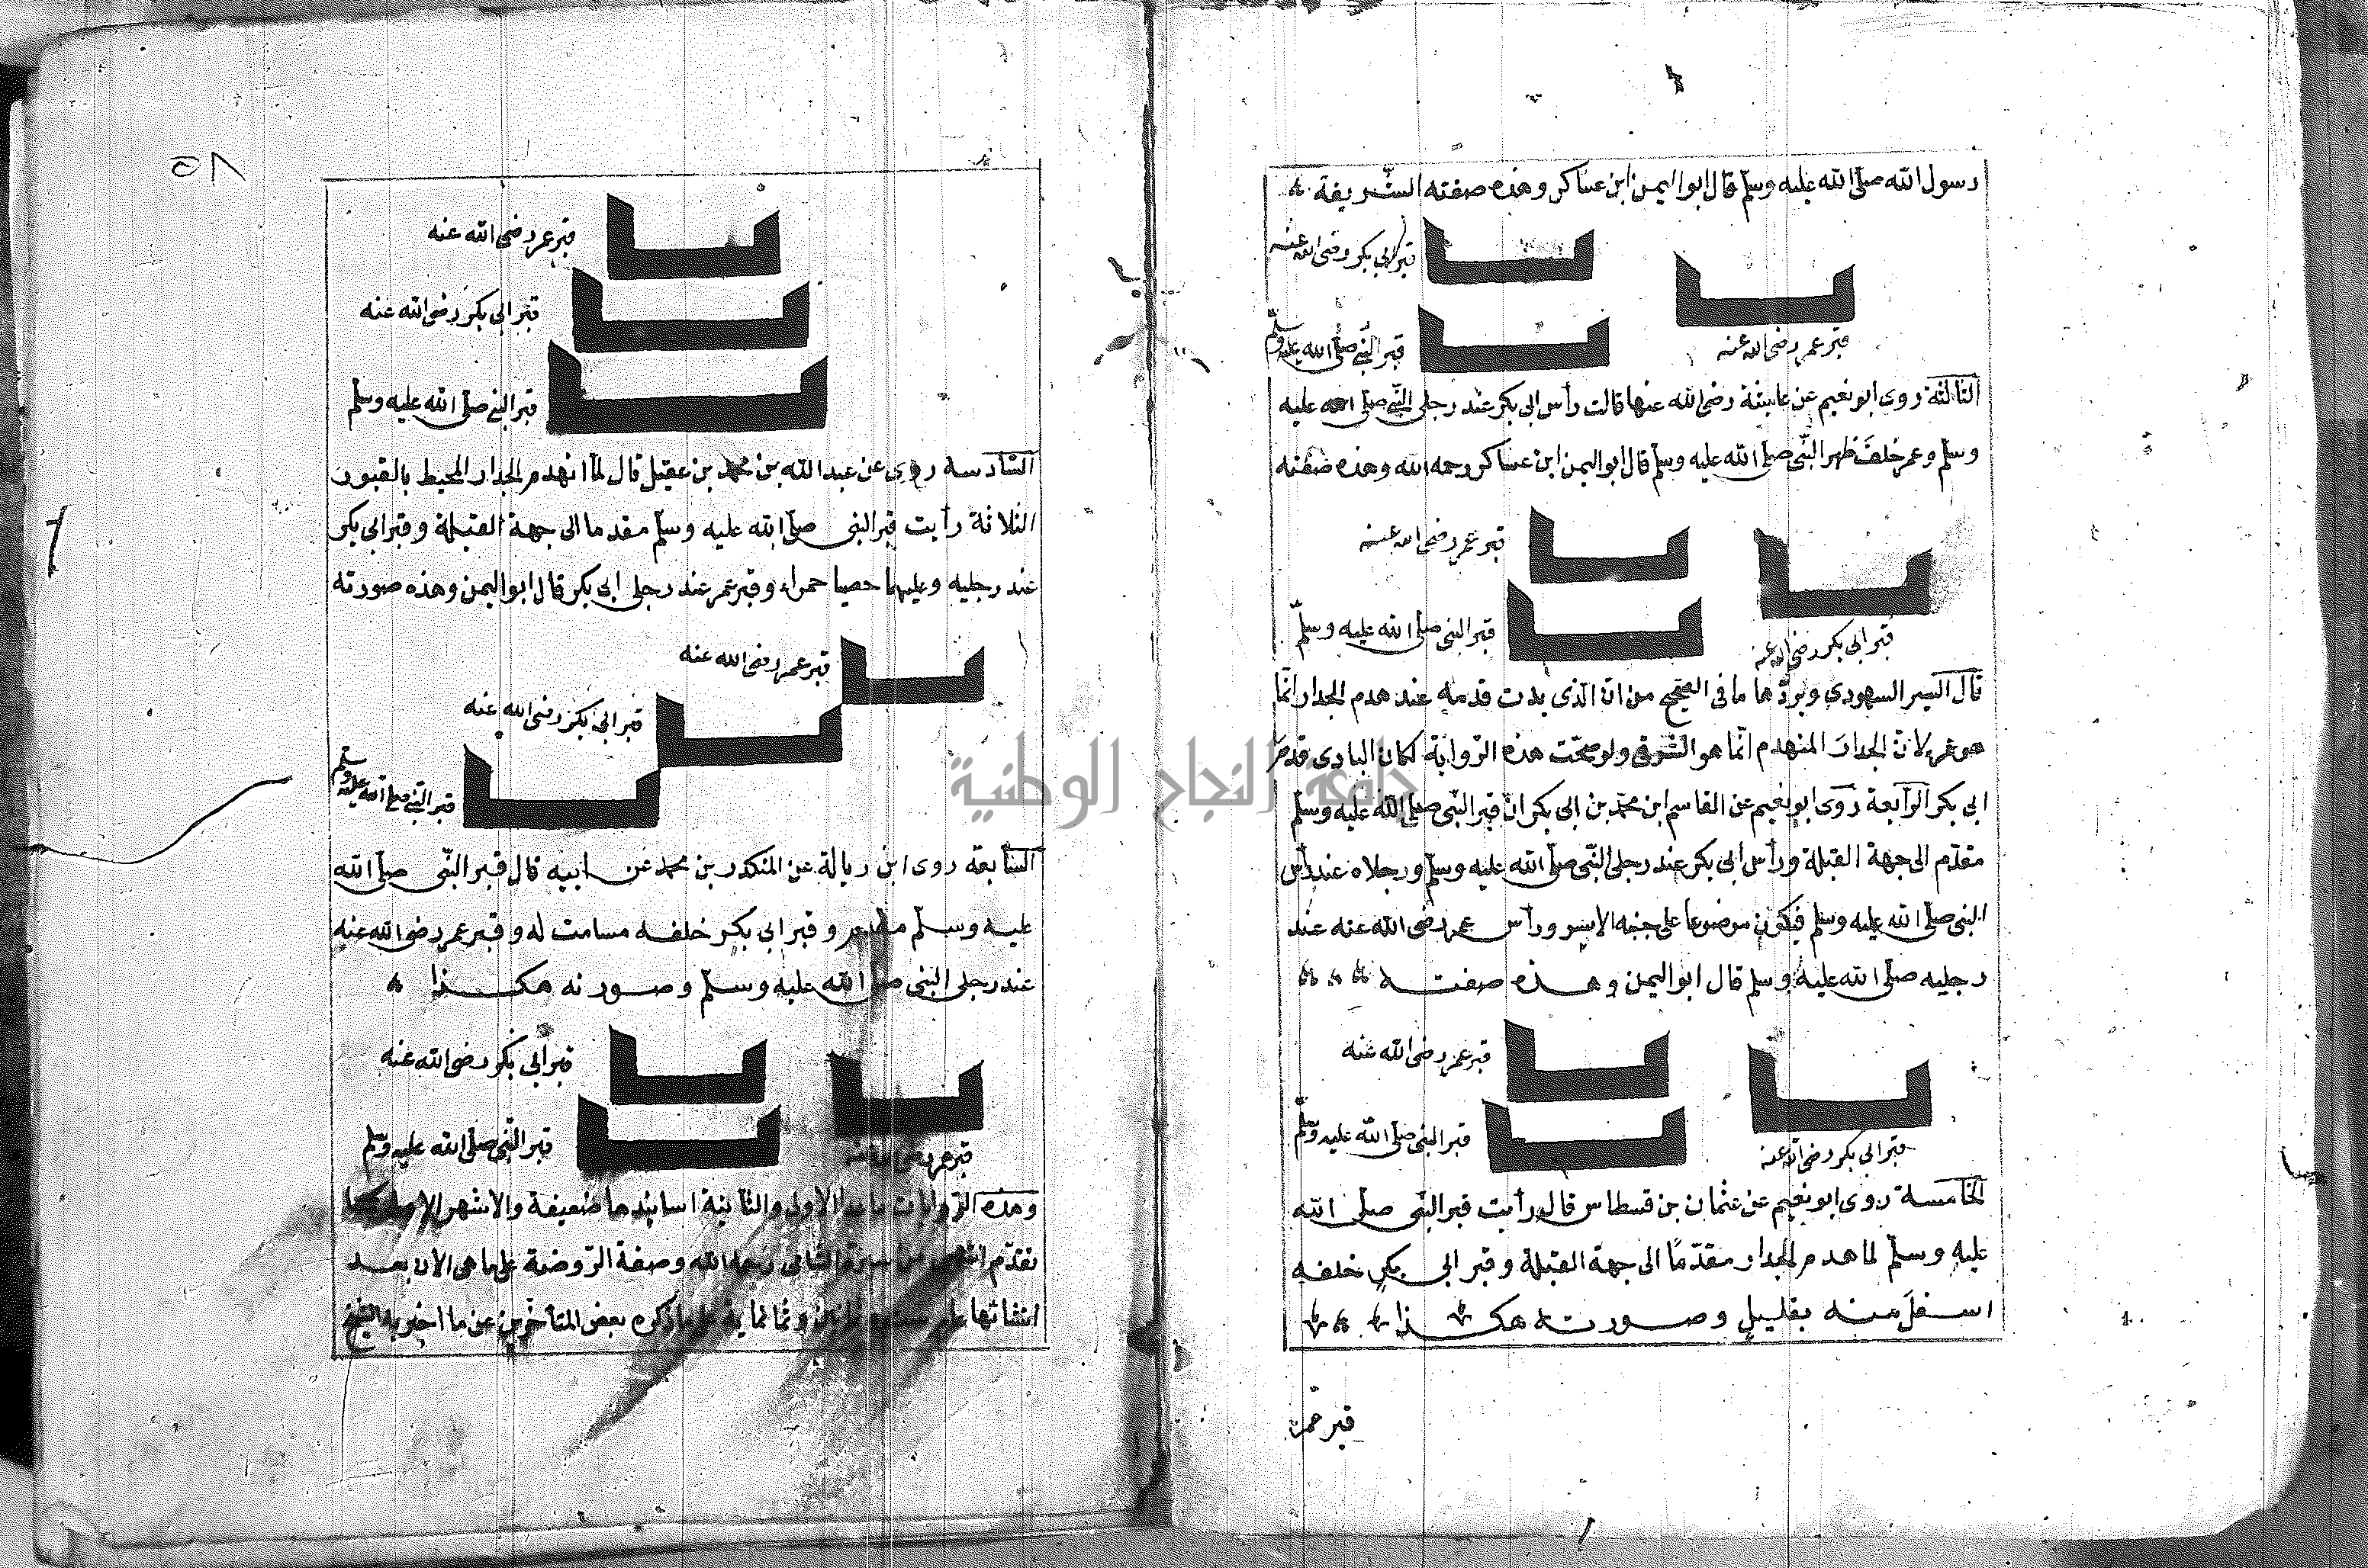 رسول الله صلى الله عليه وسلم قال ابو اليمن ابن عساكر وهذه صفته الشريفة
قبر ابي بكر رضى الله عنه
قبر النبي صلى الله عليه وسلم
قبر عمر رضى الله عنه
الثالثة روى ابو نعيم عن عايشة رضى الله عنها قالت رأس ابي بكر عند رجلى النبي صلى الله عليه
وسلم وعمر خلف ظهر النبى صلى الله عليه وسلم قال ابو اليمن ابن عساكر رحمه الله وهذه صفته
قبر عمر رضى الله عنه
قبر النبى صلى الله عليه وسلم
قبر ابي بكر رضى الله عنه
قال السهودي ويردها ما في الصحيح من ان الذى بدت قدمه عند هدم الجدار انما
هو عمر لان الجدار المنهدم انما هو الشرقي ولو صحت هذه الرواية لكان البادى قدم
ابي بكر الرابعة روى ابو نعيم عن القاسم ابن محمد بن ابى بكر ان قبر النبى صلى الله عليه وسلم
مقدم الى جهة القبلة ورأس ابى بكر عند رجلى النبى صلى الله عليه وسلم ورجلاه عند رأس
النبى صلى الله عليه وسلم فيكون موضوعا على جنبه الايسر ورأس عمر رضى الله عنه عند
رجليه صلى الله عليه وسلم قال ابو اليمن وهذه صفته
قبر عمر رضى الله عنه
قبر النبى صلى الله عليه وسلم
قبر ابي بكر رضى الله عنه
الخامسة روى ابو نعيم عن عثمان بن قسطاس قال رأيت قبر النبى صلى الله
عليه وسلم لما هدم الجدار مقدمًا الى جهة القبلة وقبر ابى بكر خلفه
اسفل منه بقليل وصورته هكذا
قبر عمر
٥٨
قبر عمر رضى الله عنه
قبر ابى بكر رضى الله عنه
قبر النبى صلى الله عليه وسلم
السادسة روى عن عبد الله بن محمد بن عقيل قال لما انهدم الجدار المحيط بالقبور
الثلاثة رأيت قبر النبى صلى الله عليه وسلم مقدما الى جهة القبلة وقبر ابى بكر
عند رجليه وعليها حصبا حمراء وقبر عمر عند رجلى ابى بكر قال ابو اليمن وهذه صورته
قبر عمر رضى الله عنه
قبر ابى بكر رضى الله عنه
قبر النبى صلى الله عليه وسلم
السابعة روى ابن زبالة عن المنكدر بن محمد عن ابيه قال قبر النبى صلى الله
عليه وسلم مقدم وقبر ابى بكر خلفه مسامت له وقبر عمر رضى الله عنه
عند رجلى النبى صلى الله عليه وسلم وصورته هكذا
قبر ابى بكر رضى الله عنه
قبر النبى صلى الله عليه وسلم
قبر عمر رضى الله عنه
وهذه الروايات ما عدا الاولى والثانية اسانيدها ضعيفة والاشهر الاولى كما
تقدم انتهى من سيرة الشامى رحمه الله وصفة الروضة على ما هى الان بعد
انشائها وثمانماية على ما ذكره بعض المتأخرين عن ما اخبر به الشيخ
جامعة النجاح الوطنية